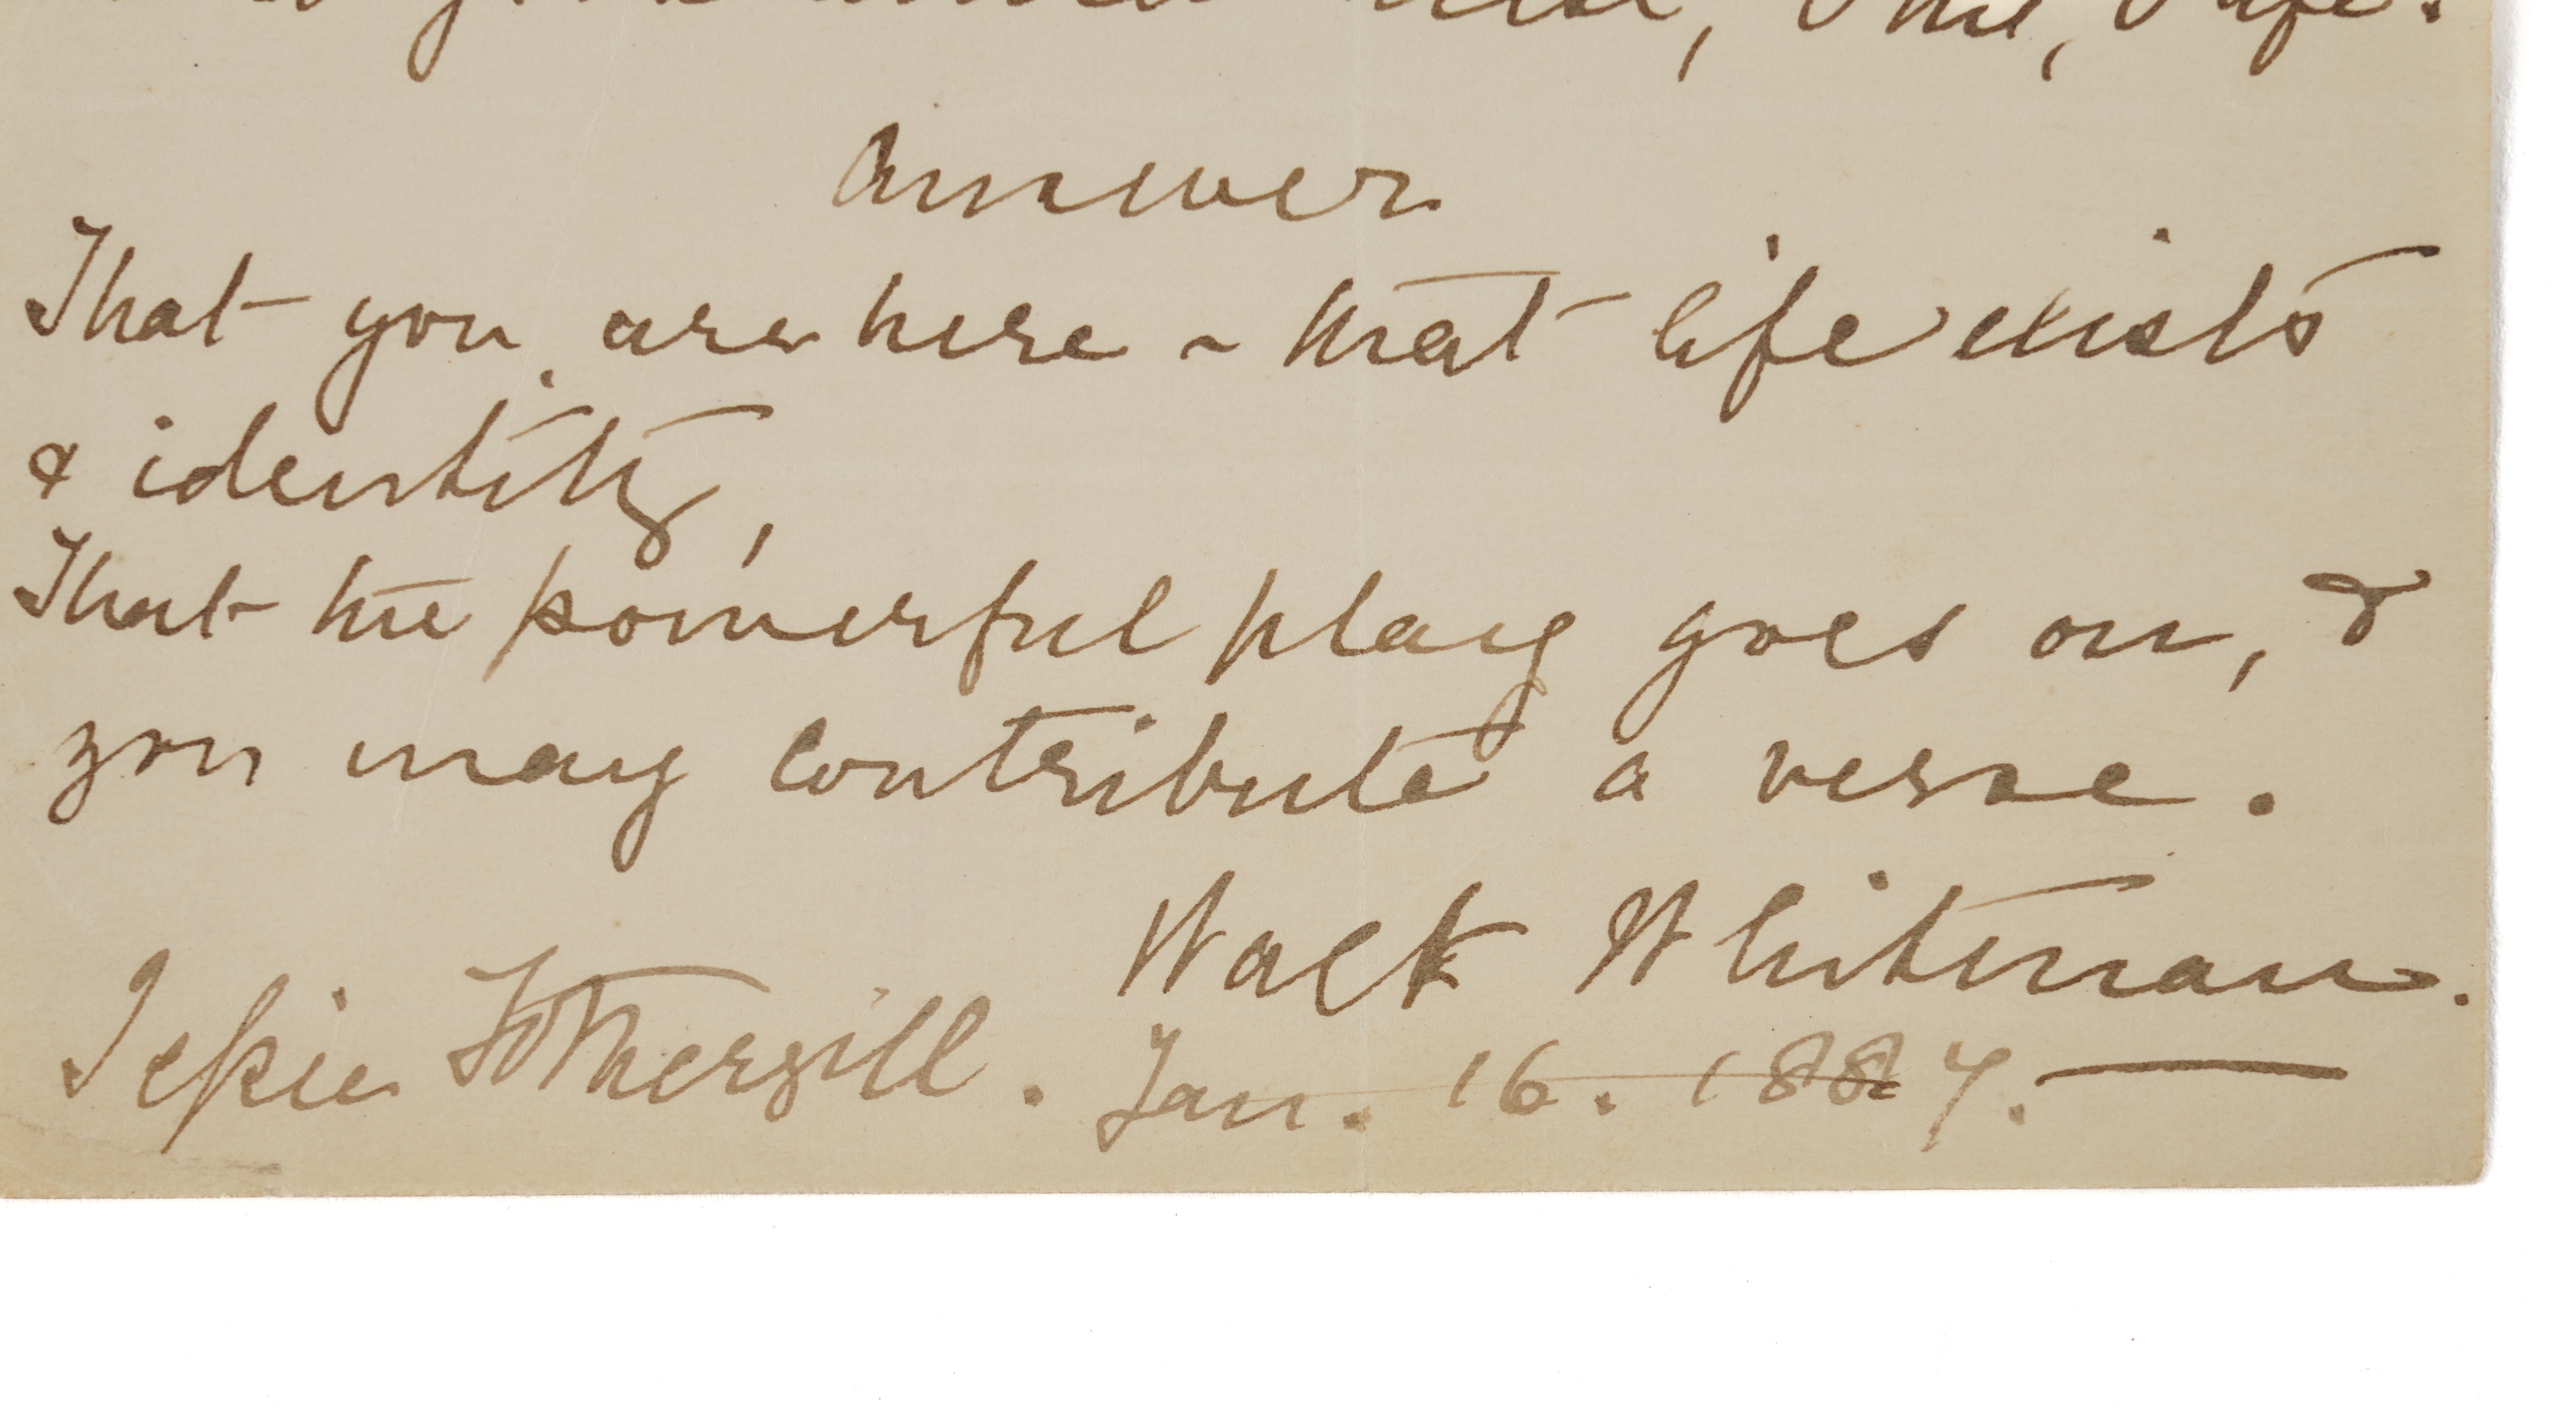 good amid these, O me, O life.
Answer
That you are here – that life exists
& identity,
That the powerful play goes on, &
you may contribute a verse.
Walt Whitman.
Jessie Fothergill. Jan. 16. 1887. —